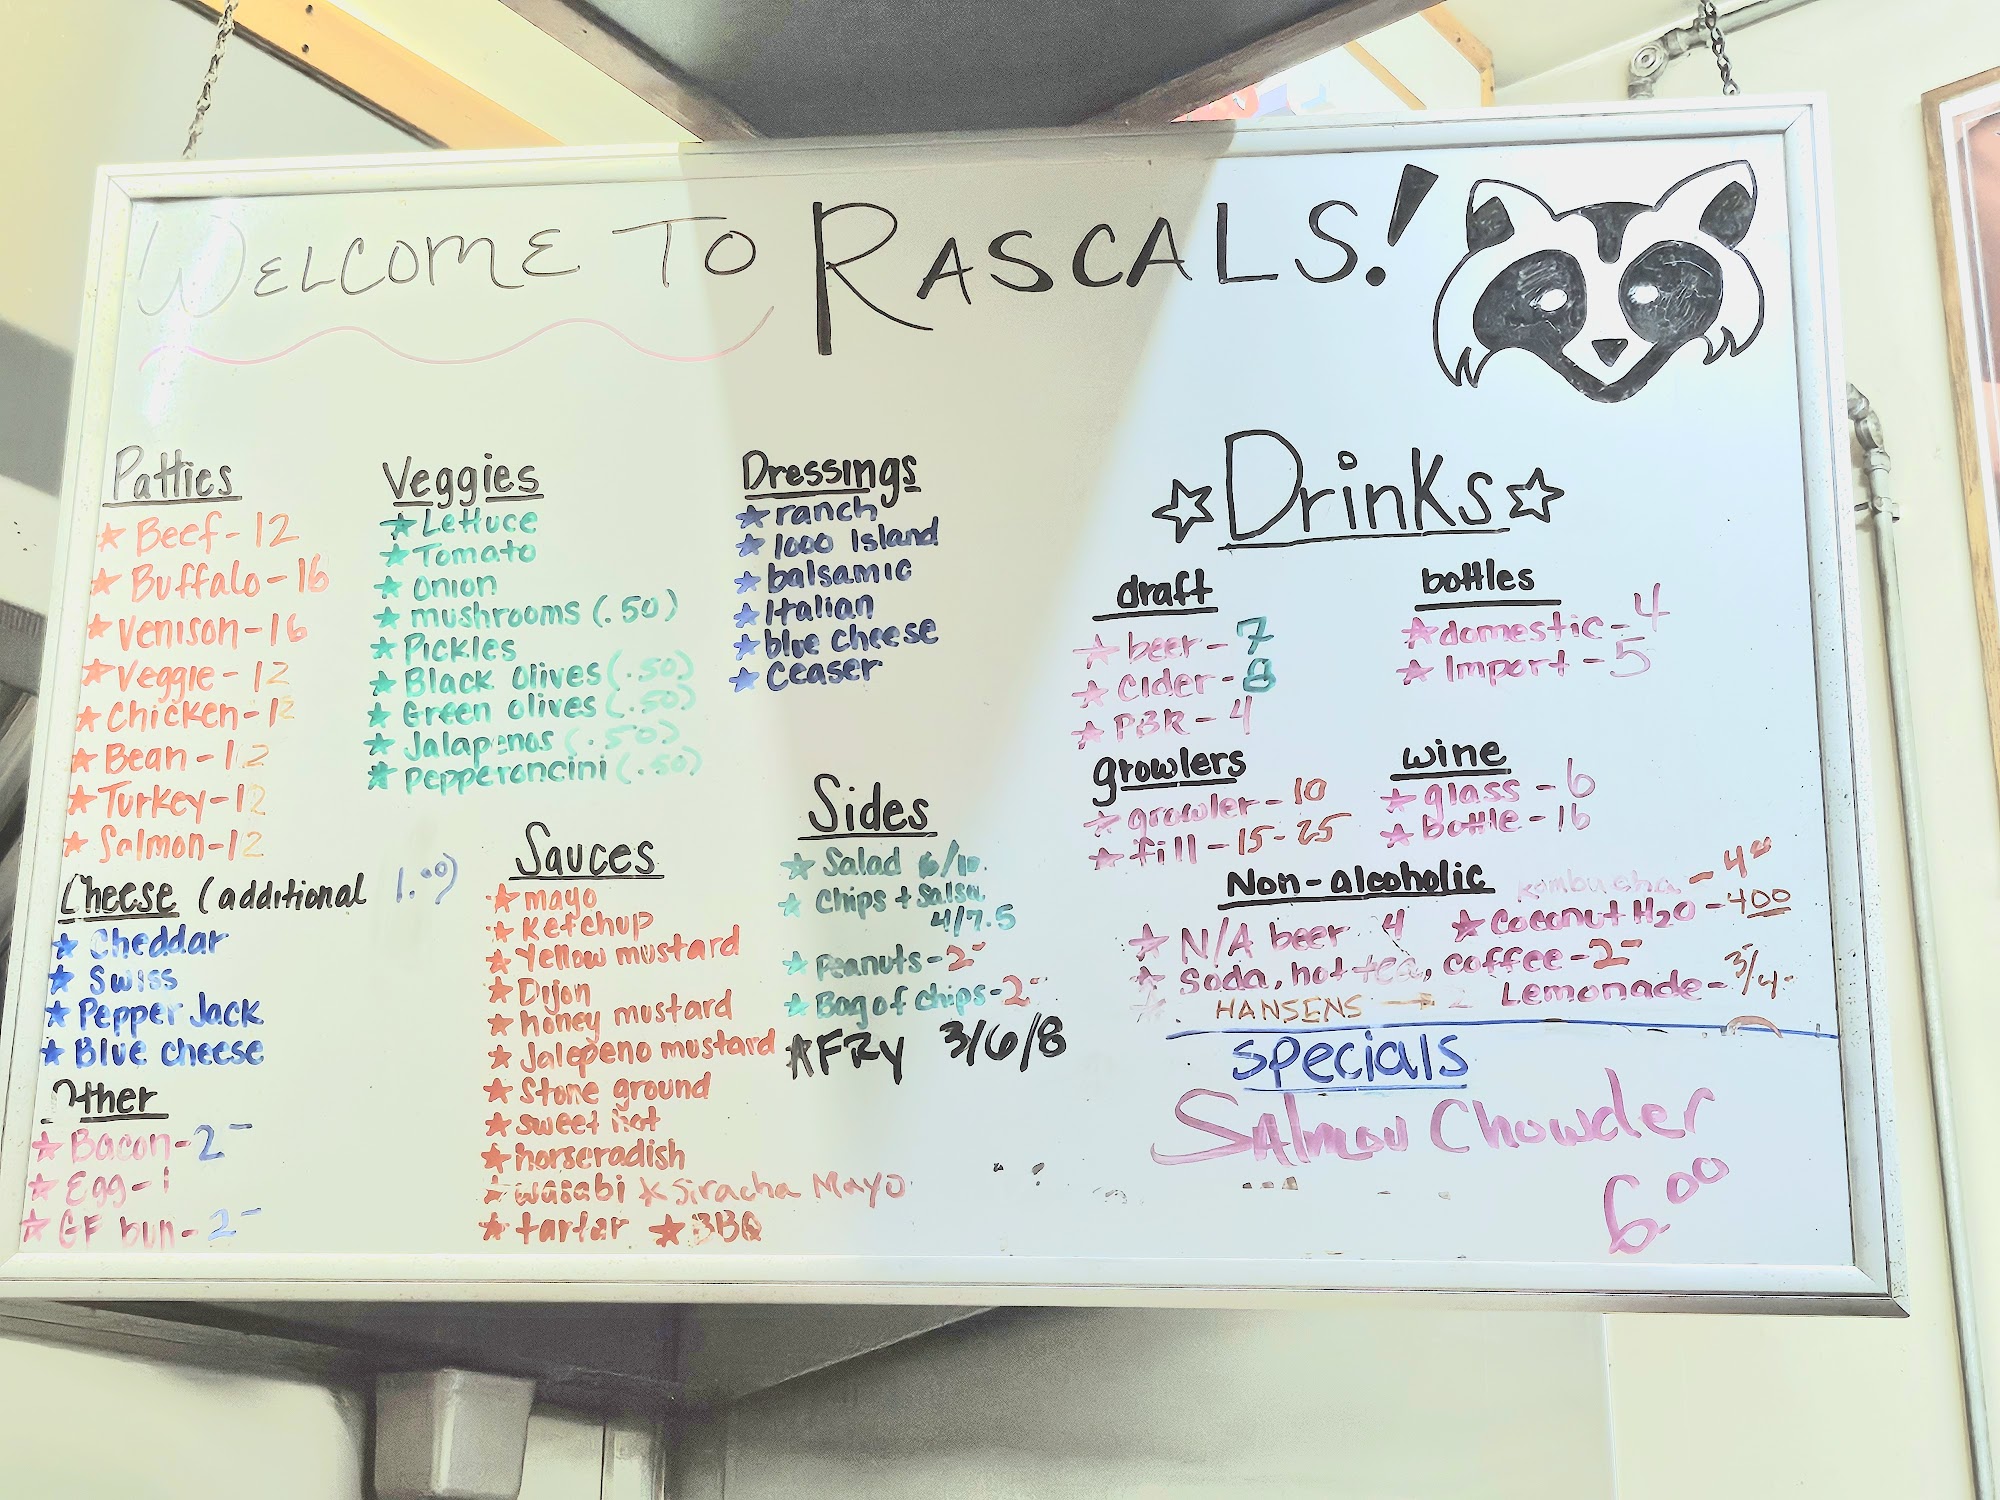 WELCOME TO RASCALS!
Patties
Beef - 12
Buffalo - 16
Venison - 16
Veggie - 12
Chicken - 12
Bean - 12
Turkey - 12
Salmon - 12
Cheese (additional 1.00)
Cheddar
Swiss
Pepper Jack
Blue cheese
Other
Bacon - 2-
Egg - 1
GF bun - 2-
Veggies
Lettuce
Tomato
onion
mushrooms (.50)
Pickles
Black olives (.50)
Green olives (.50)
Jalapenos (.50)
pepperoncini (.50)
Sauces
mayo
Ketchup
Yellow mustard
Dijon
honey mustard
Jalepeno mustard
Stone ground
sweet hot
horseradish
wasabi Siracha Mayo
tartar BBQ
Dressings
ranch
1000 Island
balsamic
Italian
blue cheese
Ceaser
Sides
Salad 6/10.
Chips + Salsa
4/7.5
Peanuts - 2-
Bag of chips - 2-
FRY 3/6/8
Drinks
draft
beer - 7
Cider - 8
PBR - 4
bottles
domestic - 4
Import - 5
growlers
growler - 10
fill - 15 - 25
wine
glass - 6
bottle - 16
Non-alcoholic Kombucha - 4.00
N/A beer 4 Coconut H2O - 400
Soda, hot tea, coffee - 2-
HANSENS → 2 Lemonade - 3/4-
Specials
Salmon Chowder
6.00